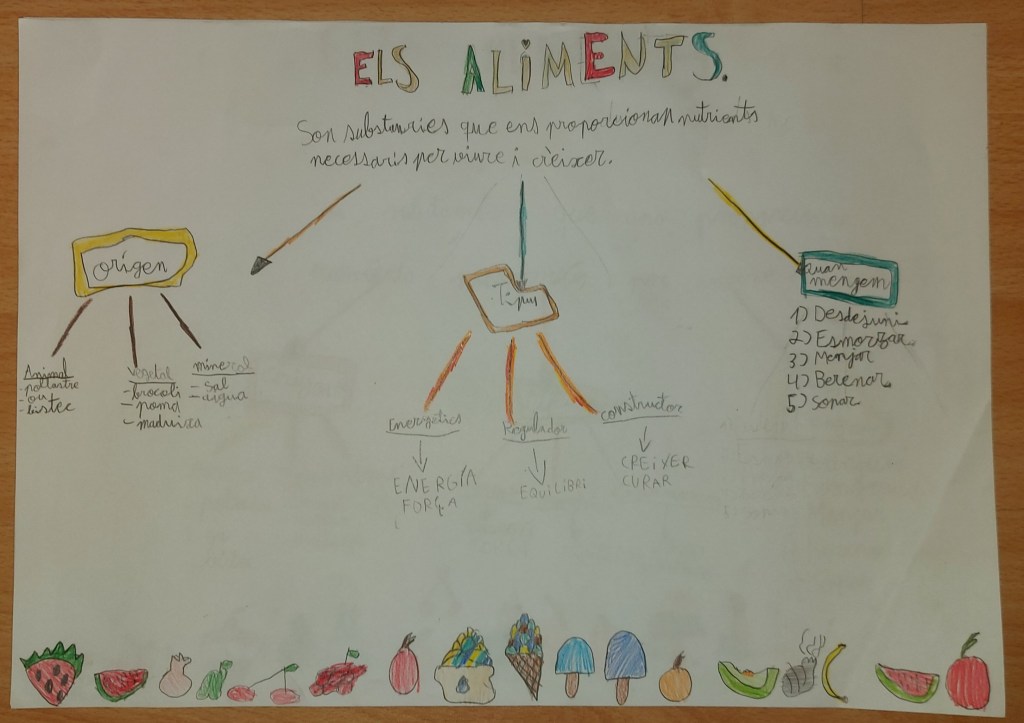 ELS ALIMENTS.
Son substancies que ens proporcionan nutrients
necessaris per viure i crèixer.
origen
Animal
- pollastre
- ou
- bistec
Vegetal
- brocoli
- poma
- maduixa
mineral
- sal
- aigua
Tipus
Energetics
ENERGÍA
FORÇA
Regulador
EQUILIBRI
constructor
CREIXER
CURAR
quan
mengem
1) Desdejuni
2) Esmorzar
3) Menjar
4) Berenar
5) Sopar